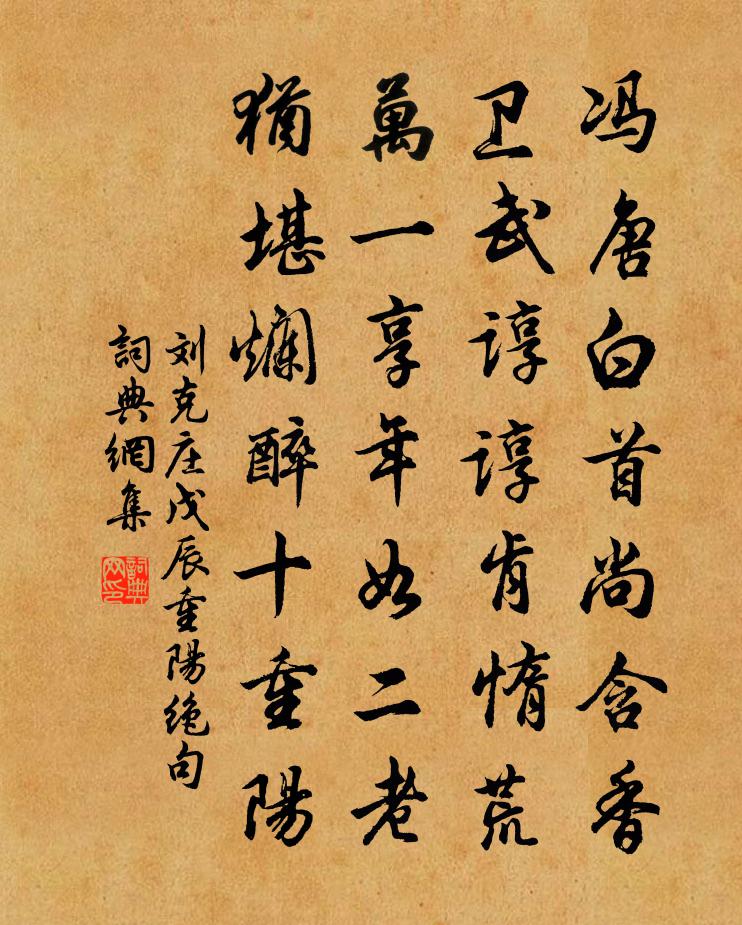 冯唐白首尚含香
卫武谆谆肯惰荒
萬一享年如二老
猶堪爛醉十重陽
刘克庄戊辰重陽绝句
詞典網集
詞典网印